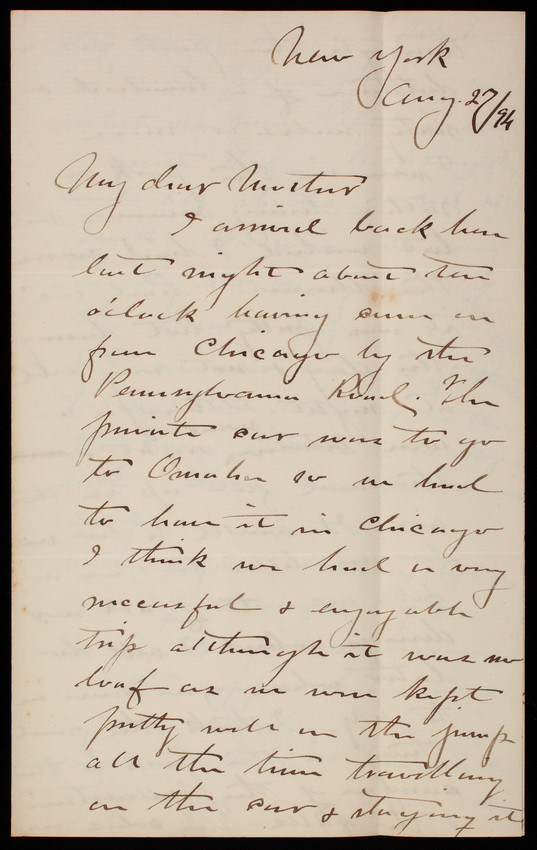 New York
Aug. 27/94
My dear Mother
I arrived back here
last night about ten
o'clock having come on
from Chicago by the
Pennsylvania Road. The
private car was to go
to Omaha so we had
to leave it in Chicago
I think we had a very
successful & enjoyable
trip although it was no
loaf as we were kept
pretty well on the jump
all the time travelling
on the car & staying it